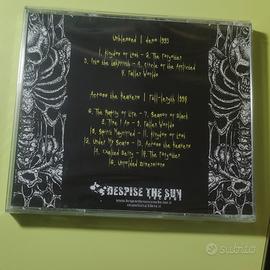 Unblessed | demo 1995
1. Kingdom of Lost - 2. The Forgotten
3. Into the Labyrinth - 4. Circle of the Afflicted
5. Fallen Worlds
Across the Heavens | full-length 1998
6. The Reality of Life - 7. Season of Black
8. Time I Am - 9. Fallen Worlds
10. Spirit Magnified - 11. Kingdom of Lost
12. Under My Scars - 13. Across the Heavens
14. Chained Deity - 15. The Forgotten
16. Unfolded Dimensions
DESPISE THE SUN
subito